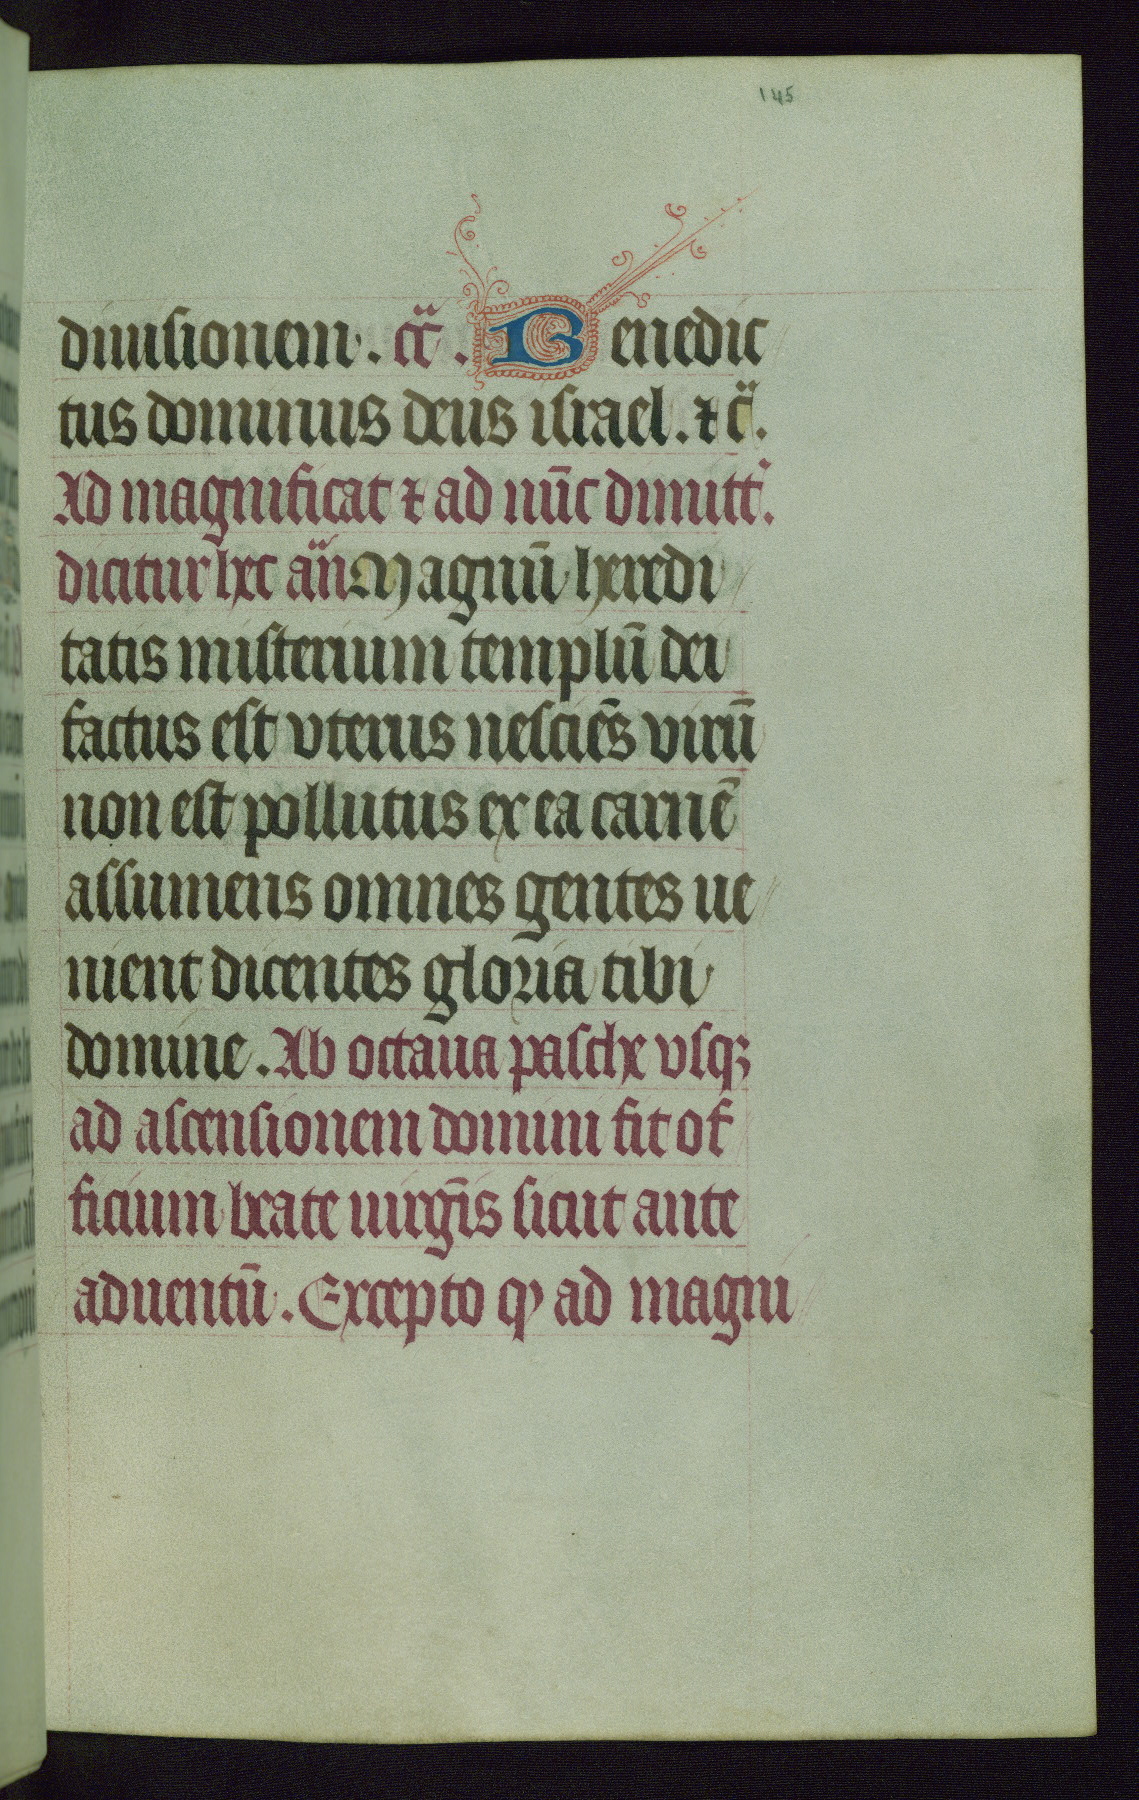 145
diuisionem. cc̄. Benedic
tus dominus deus israel. ⁊ c̄.
Ad magnificat ⁊ ad nūc dimitt̄.
dicitur hec an̄ Magnū heredi
tatis misterium templū dei
factus est vterus nesciēs virū
non est pollutus ex ea carnē
assumens omnes gentes ue
nient dicentes gloria tibi
domine. Ab octaua pasche vsqꝫ
ad ascensionem domini fit of
ficium beate uirgīs sicut ante
aduentū. Excepto ꝙ ad magni